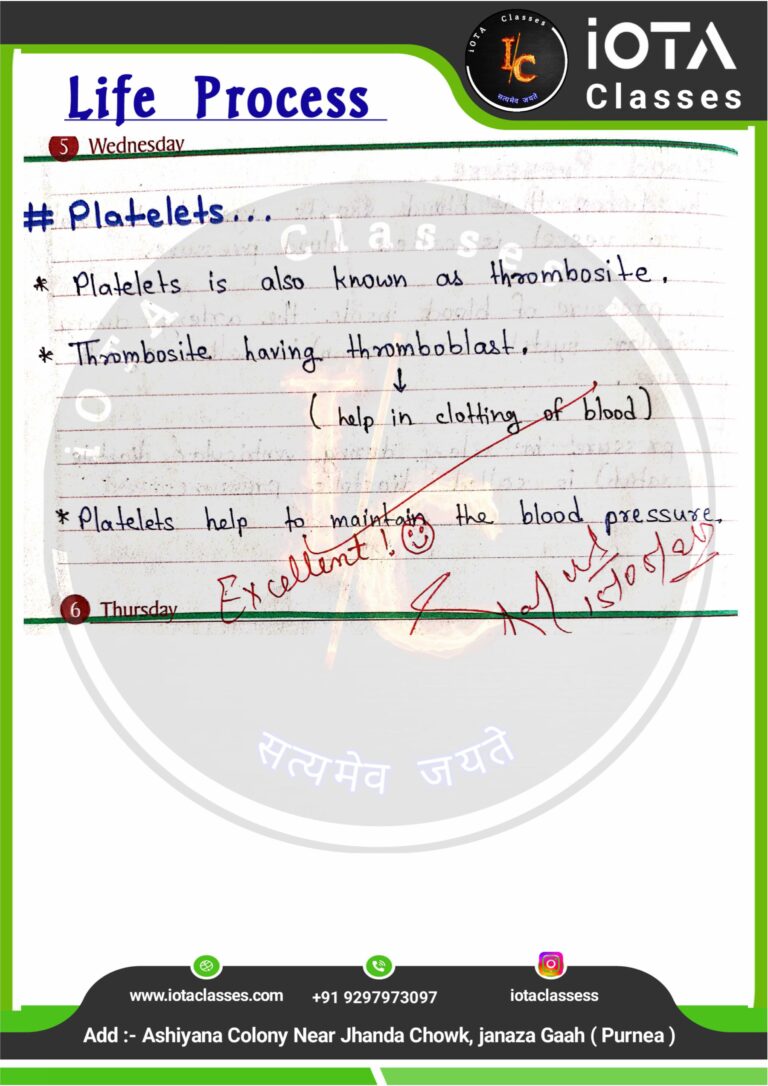 iOTA Classes
I/C
सत्यमेव जयते
iOTA
Classes
Life Process
5 Wednesday
# Platelets...
* Platelets is also known as thrombosite.
* Thrombosite having thromboblast.
↓
( help in clotting of blood )
* Platelets help to maintain the blood pressure.
Excellent!
6 Thursday
iOTA Classes
I/C
सत्यमेव जयते
www.iotaclasses.com
+91 9297973097
iotaclassess
Add :- Ashiyana Colony Near Jhanda Chowk, janaza Gaah ( Purnea )